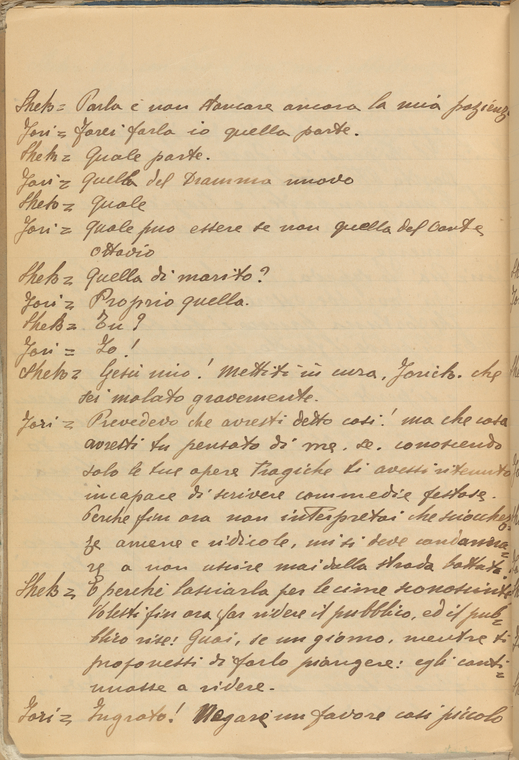 Sheks = Parla e non stancare ancora la mia pazienz
Jori = Forei farla io quella parte.
Sheks = Quale parte.
Jori = Quella del Dramma nuovo
Sheks = Quale
Jori = Quale puo essere se non quella del Conte
Ottavio
Sheks = Quella di marito?
Jori = Proprio quella.
Sheks = Tu?
Jori = Io!
Sheks = Gesù mio! Mettiti in cura, Jorick. che
sei malato gravemente.
Jori = Prevedevo che avresti detto cosi! ma che cosa
avresti tu pensato di me. se. conoscendo
solo le tue opere tragiche ti avessi ritenuto
incapace di scrivere commedie festose.
Perche fin ora non interpretai che sciocchez=
ze amene e ridicole, mi si deve condanna=
re a non uscire mai dalla strada battuta.
Sheks = E perché lasciarla per le cime sconosciute
Volesti fin ora far ridere il pubblico, ed il pub=
blico rise! Guai, se un giorno, mentre ti
proponessi di farlo piangere: egli conti=
nuasse a ridere.
Jori = Ingrato! Negare un favore cosi piccolo